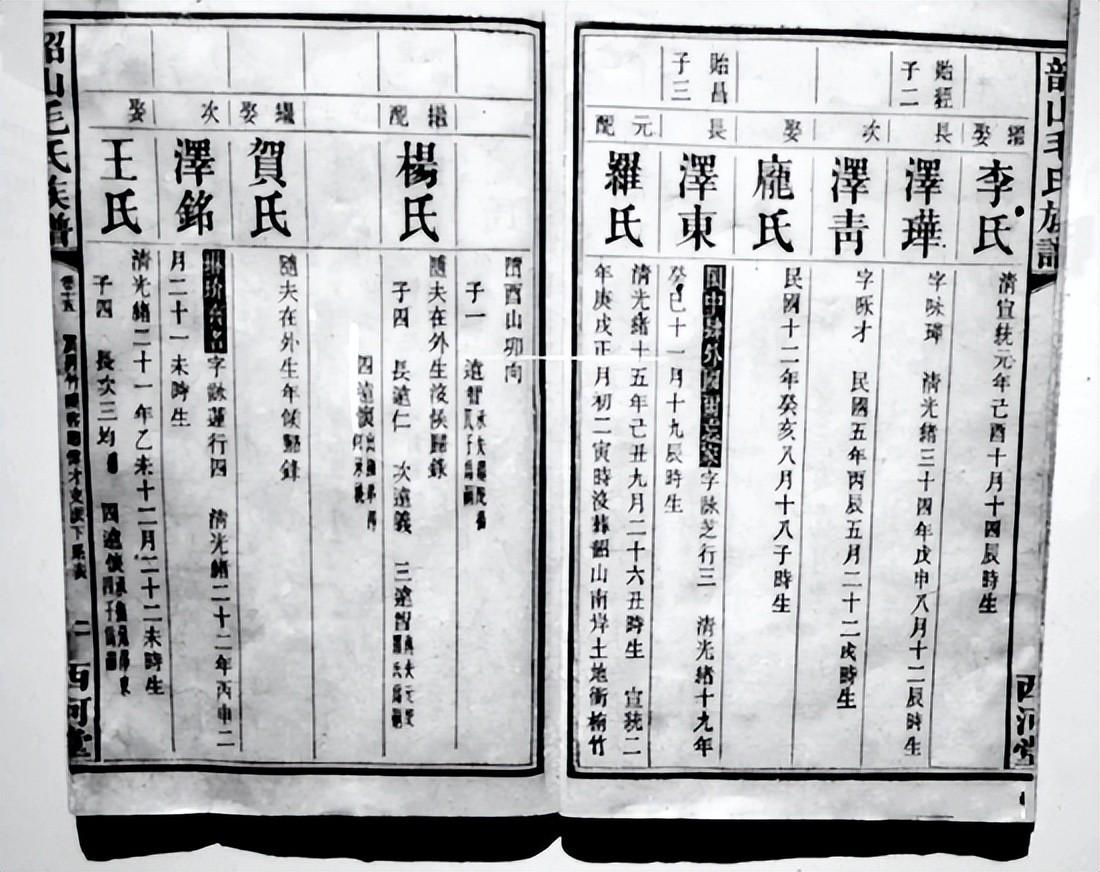 韶山毛氏族譜
西河堂
繼娶
李氏
清宣統元年己酉十月十四辰時生
貽經
子二
長
澤璉
字咏璉 清光緒三十四年戊申八月十二辰時生
次
澤青
字咏才 民國五年丙辰五月二十二戌時生
娶
龐氏
民國十二年癸亥八月十八子時生
貽昌
子三
長
澤東
字詠芝行三 清光緒十九年
癸巳十一月十九辰時生
元配
羅氏
清光緒十五年己丑九月二十六丑時生 宣統二
年庚戌正月初二寅時沒葬韶山南岸土地衝楠竹
酉山卯向
子一 遠智
繼配
楊氏
隨夫在外生沒候歸錄
子四 長遠仁 次遠義 三遠智
四遠
繼娶
賀氏
隨夫在外生年候歸錄
次
澤銘
字詠蓮行四 清光緒二十二年丙申二
月二十一未時生
娶
王氏
清光緒二十一年乙未十二月二十二未時生
子四 長次三均 四遠
韶山毛氏族譜
卷十五
二
西河堂